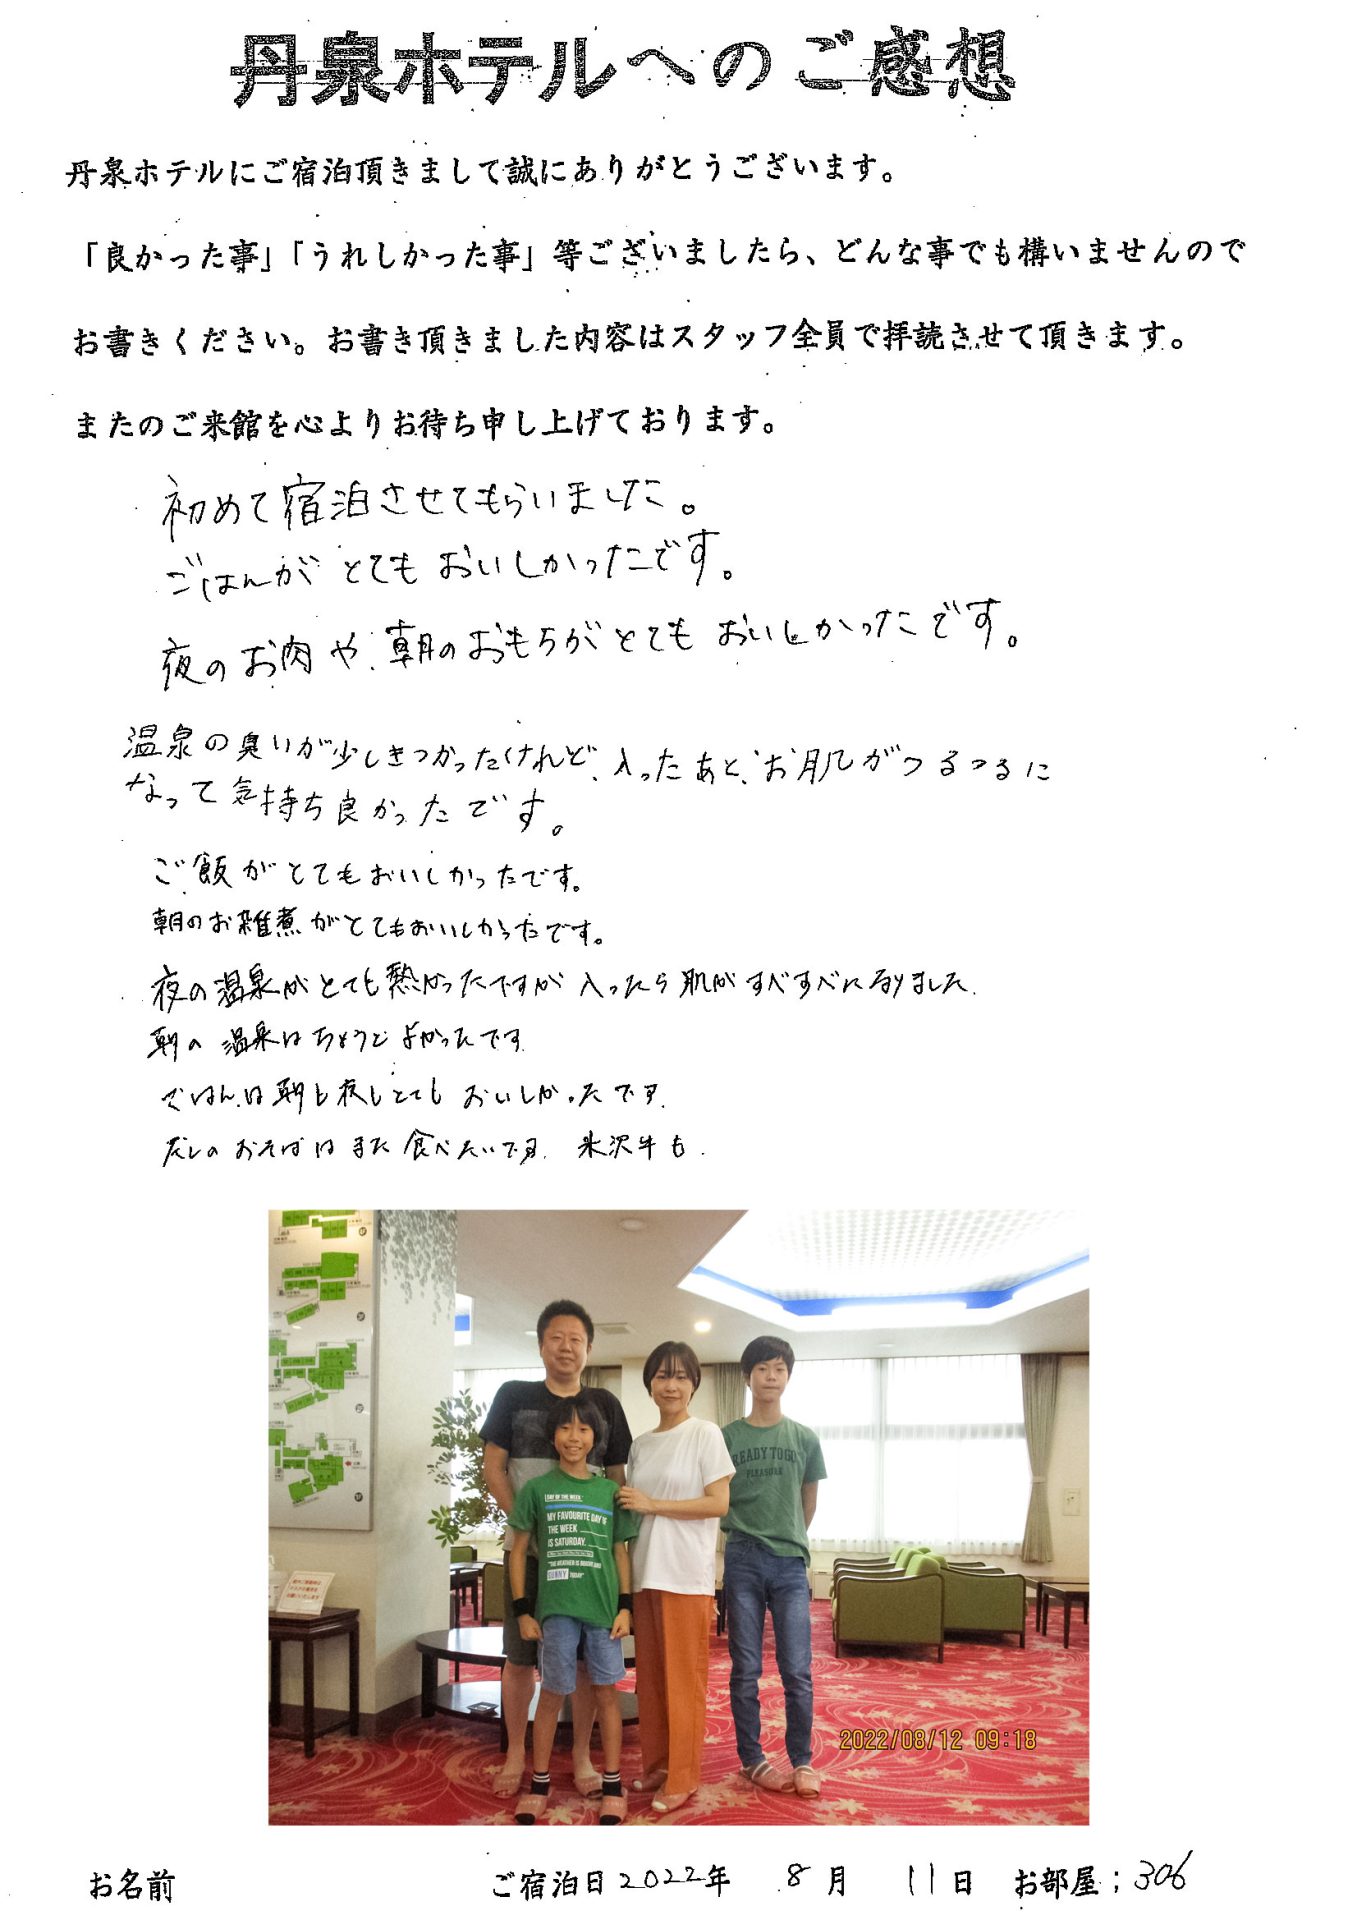 丹泉ホテルへのご感想
丹泉ホテルにご宿泊頂きまして誠にありがとうございます。
「良かった事」「うれしかった事」等ございましたら、どんな事でも構いませんので
お書きください。お書き頂きました内容はスタッフ全員で拝読させて頂きます。
またのご来館を心よりお待ち申し上げております。
初めて宿泊させてもらいました。
ごはんがとてもおいしかったです。
夜のお肉や、朝のおもちがとてもおいしかったです。
温泉の臭いが少しきつかったけれど、入ったあと、お肌がつるつるに
なって気持ち良かったです。
ご飯がとてもおいしかったです。
朝のお雑煮がとてもおいしかったです。
夜の温泉がとても熱かったですが入ったら肌がすべすべになりました.
朝の温泉はちょうどよかったです
ごはんは朝も夜もとてもおいしかったです.
だしのおそばはまた食べたいです. 米沢牛も.
DAY OF THE WEEK
MY FAVOURITE DAY OF
THE WEEK
IS SATURDAY.
"THE WEATHER IS BRIGHT AND
SUNNY TODAY"
READY TO GO
PLEASURE
2022/08/12 09:18
お名前 ご宿泊日2022年 8月 11日 お部屋；306